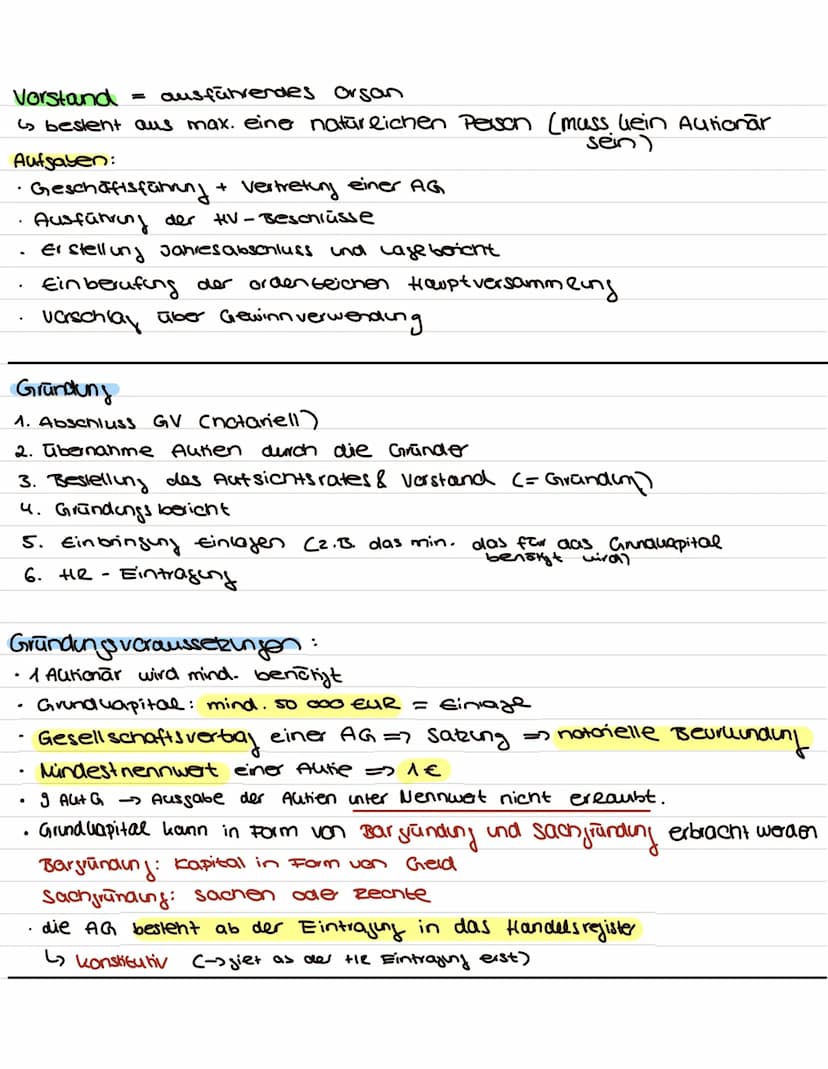 Vorstand = ausführendes Organ
↳ besteht aus max. einer natürlichen Person (muss kein Aktionär
sein)
Aufgaben:
· Geschäftsführung + Vertretung einer AG
· Ausführung der HV-Beschlüsse
· Erstellung Jahresabschluss und Lagebericht
· Einberufung der ordentlichen Hauptversammlung
· Vorschlag über Gewinnverwendung
Gründung
1. Abschluss GV (notariell)
2. Übernahme Aktien durch die Gründer
3. Bestellung des Aufsichtsrates & Vorstand (= Gründung)
4. Gründungsbericht
5. Einbringung Einlagen (z.B. das min. das für das Grundkapital
benötigt wird)
6. HR - Eintragung
Gründungsvoraussetzungen:
· 1 Aktionär wird mind. benötigt
· Grundkapital: mind. 50 000 EUR = Einlage
· Gesellschaftsvertrag einer AG => Satzung => notarielle Beurkundung
· Mindestnennwert einer Aktie => 1 €
· 9 AktG → Ausgabe der Aktien unter Nennwert nicht erlaubt.
· Grundkapital kann in Form von Bargründung und Sachgründung erbracht werden
Bargründung: Kapital in Form von Geld
Sachgründung: Sachen oder Rechte
· die AG besteht ab der Eintragung in das Handelsregister
↳ konstitutiv (→ gilt ab der HR Eintragung erst)